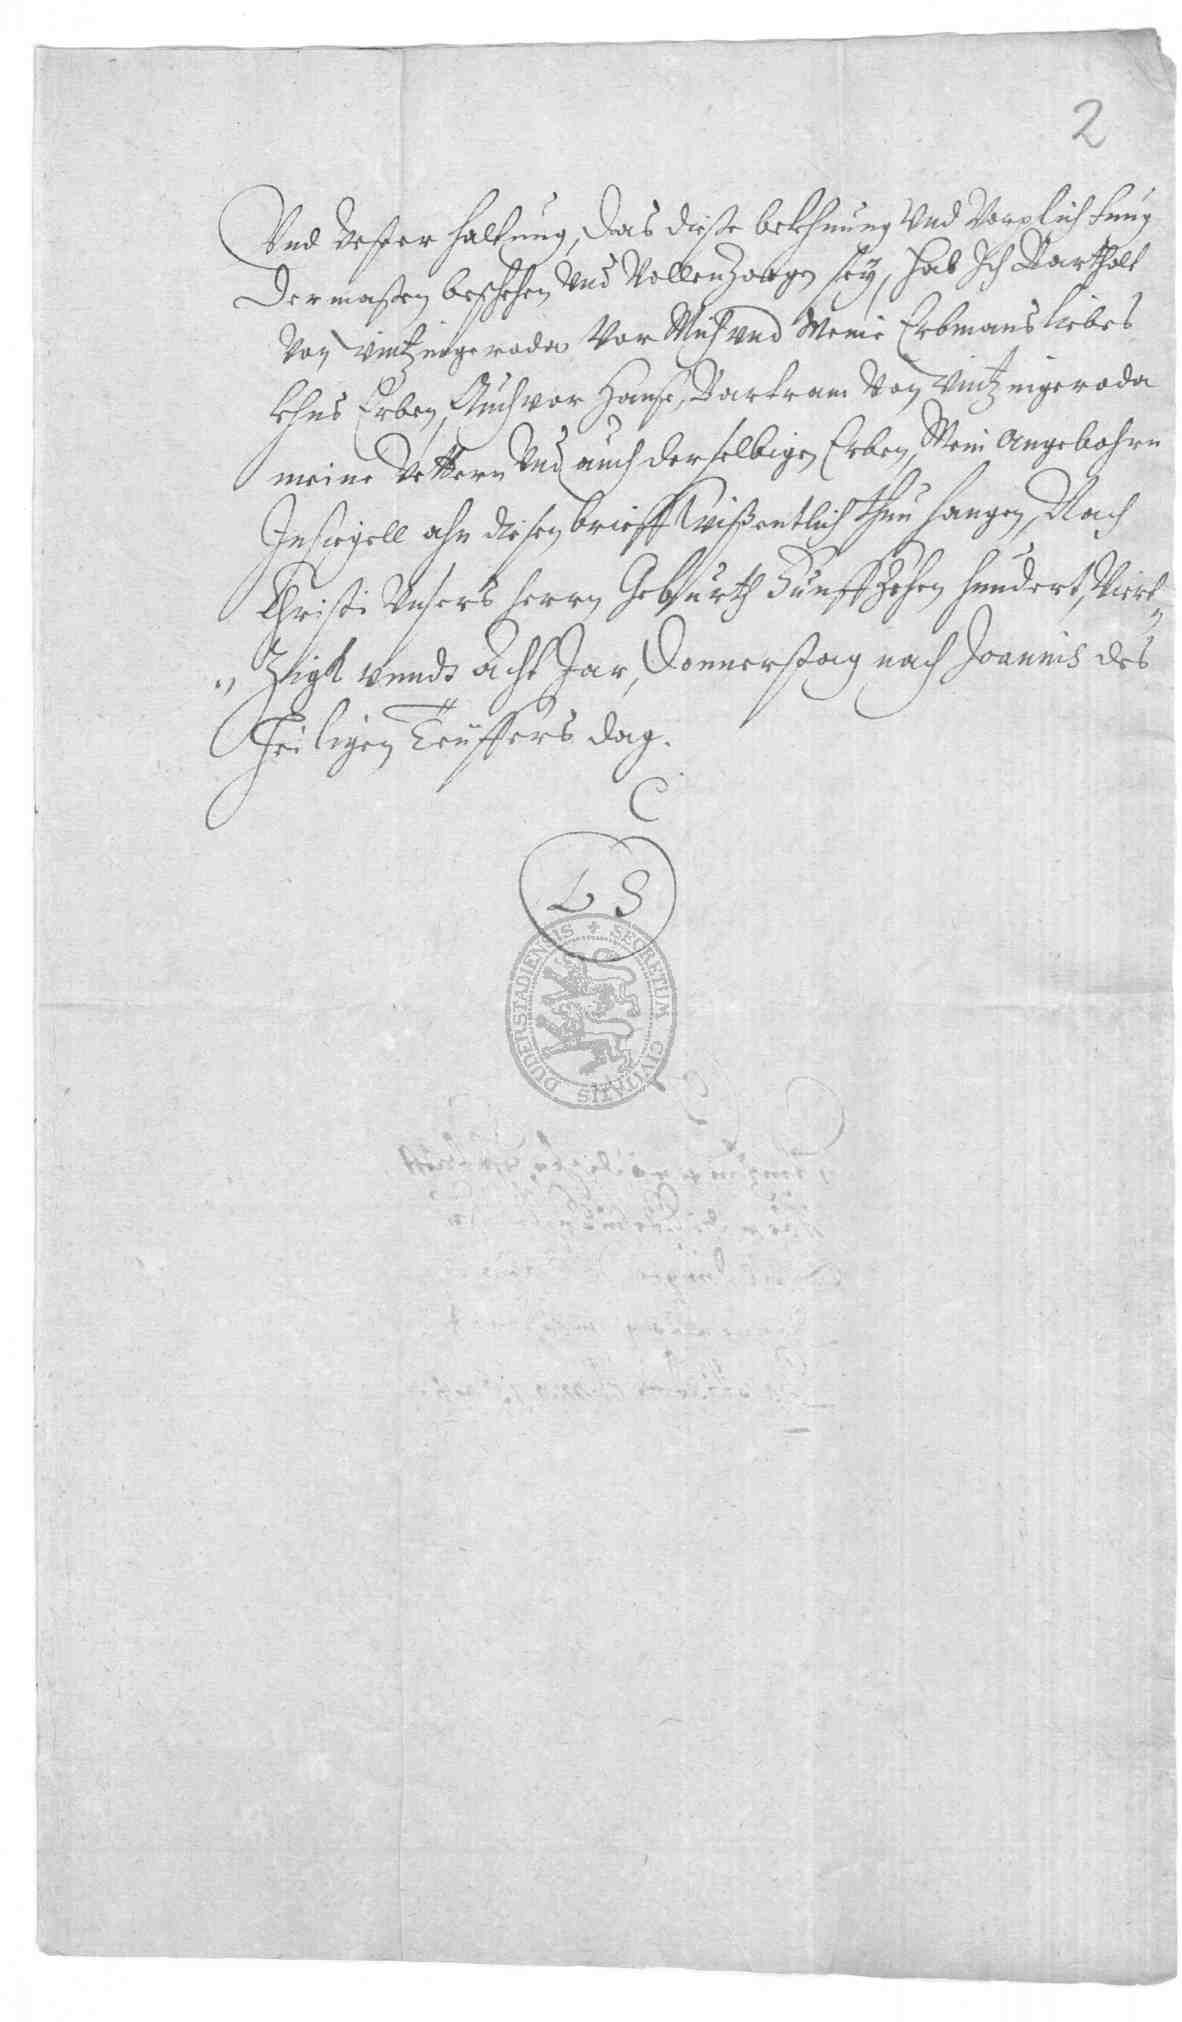 2
Vnd vester haltung, das diese belehnung vnd Vorplichtung
dermaßen beschehen vnd Vollenzogen sey, hab Ich Barthold
von wintzingeroda vor Mich vnd Meine Erbmans liebes
lehns Erben, Auch vor Hanß, Bartram von wintzingeroda
meine Vettern Vnd auch derselbigen Erben, Mein Angebohrn
Insiegell ahn diesen brieff wißentlich thun hangen, Nach
Christi Vnsers herrn Gebuurth Funffzehen hundert, Viert„
„Zigk vnndt acht Jar, Donnerstag nach Joannis des
Heiligen Teuffers dag.
L S
SECRETUM CIVITATIS DUDERSTADIENSIS